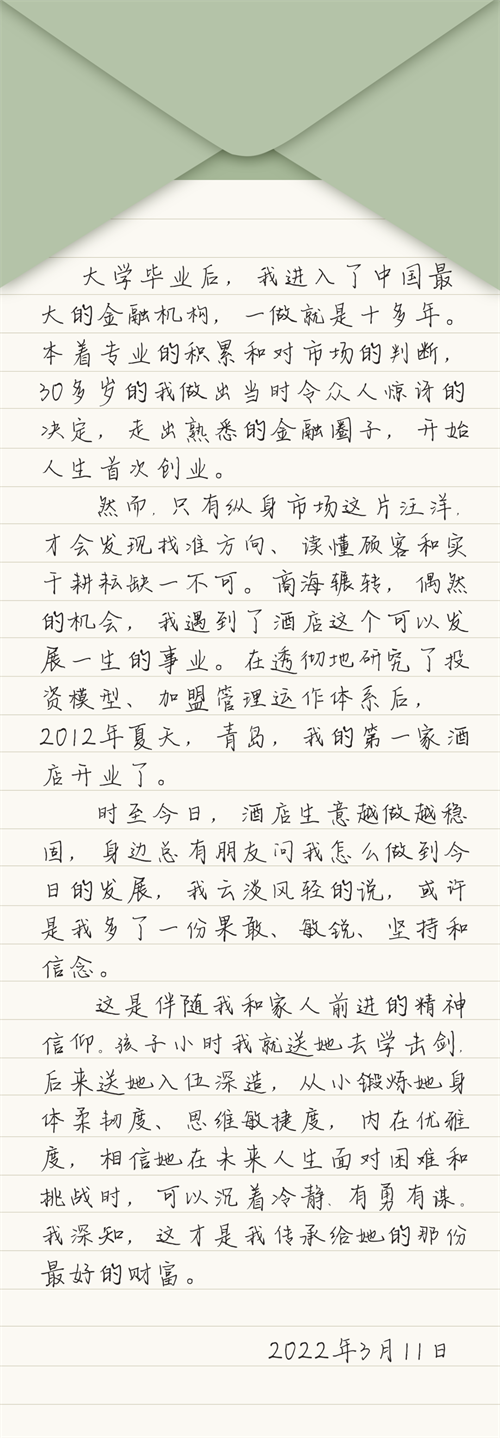 大学毕业后，我进入了中国最
大的金融机构，一做就是十多年。
本着专业的积累和对市场的判断，
30多岁的我做出当时令众人惊讶的
决定，走出熟悉的金融圈子，开始
人生首次创业。
然而，只有纵身市场这片汪洋，
才会发现找准方向、读懂顾客和实
干耕耘缺一不可。商海辗转，偶然
的机会，我遇到了酒店这个可以发
展一生的事业。在透彻地研究了投
资模型、加盟管理运作体系后，
2012年夏天，青岛，我的第一家酒
店开业了。
时至今日，酒店生意越做越稳
固，身边总有朋友问我怎么做到今
日的发展，我云淡风轻的说，或许
是我多了一份果敢、敏锐、坚持和
信念。
这是伴随我和家人前进的精神
信仰。孩子小时我就送她去学击剑，
后来送她入伍深造，从小锻炼她身
体柔韧度、思维敏捷度，内在优雅
度，相信她在未来人生面对困难和
挑战时，可以沉着冷静、有勇有谋。
我深知，这才是我传承给她的那份
最好的财富。
2022年3月11日